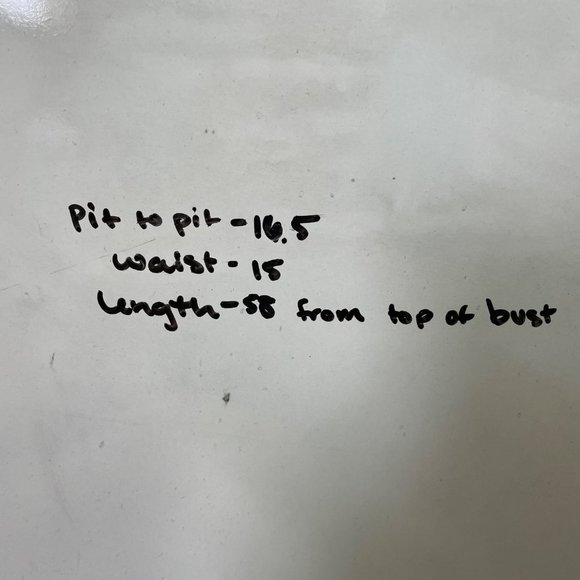 Pit to pit - 16.5
waist - 15
length - 58 from top of bust